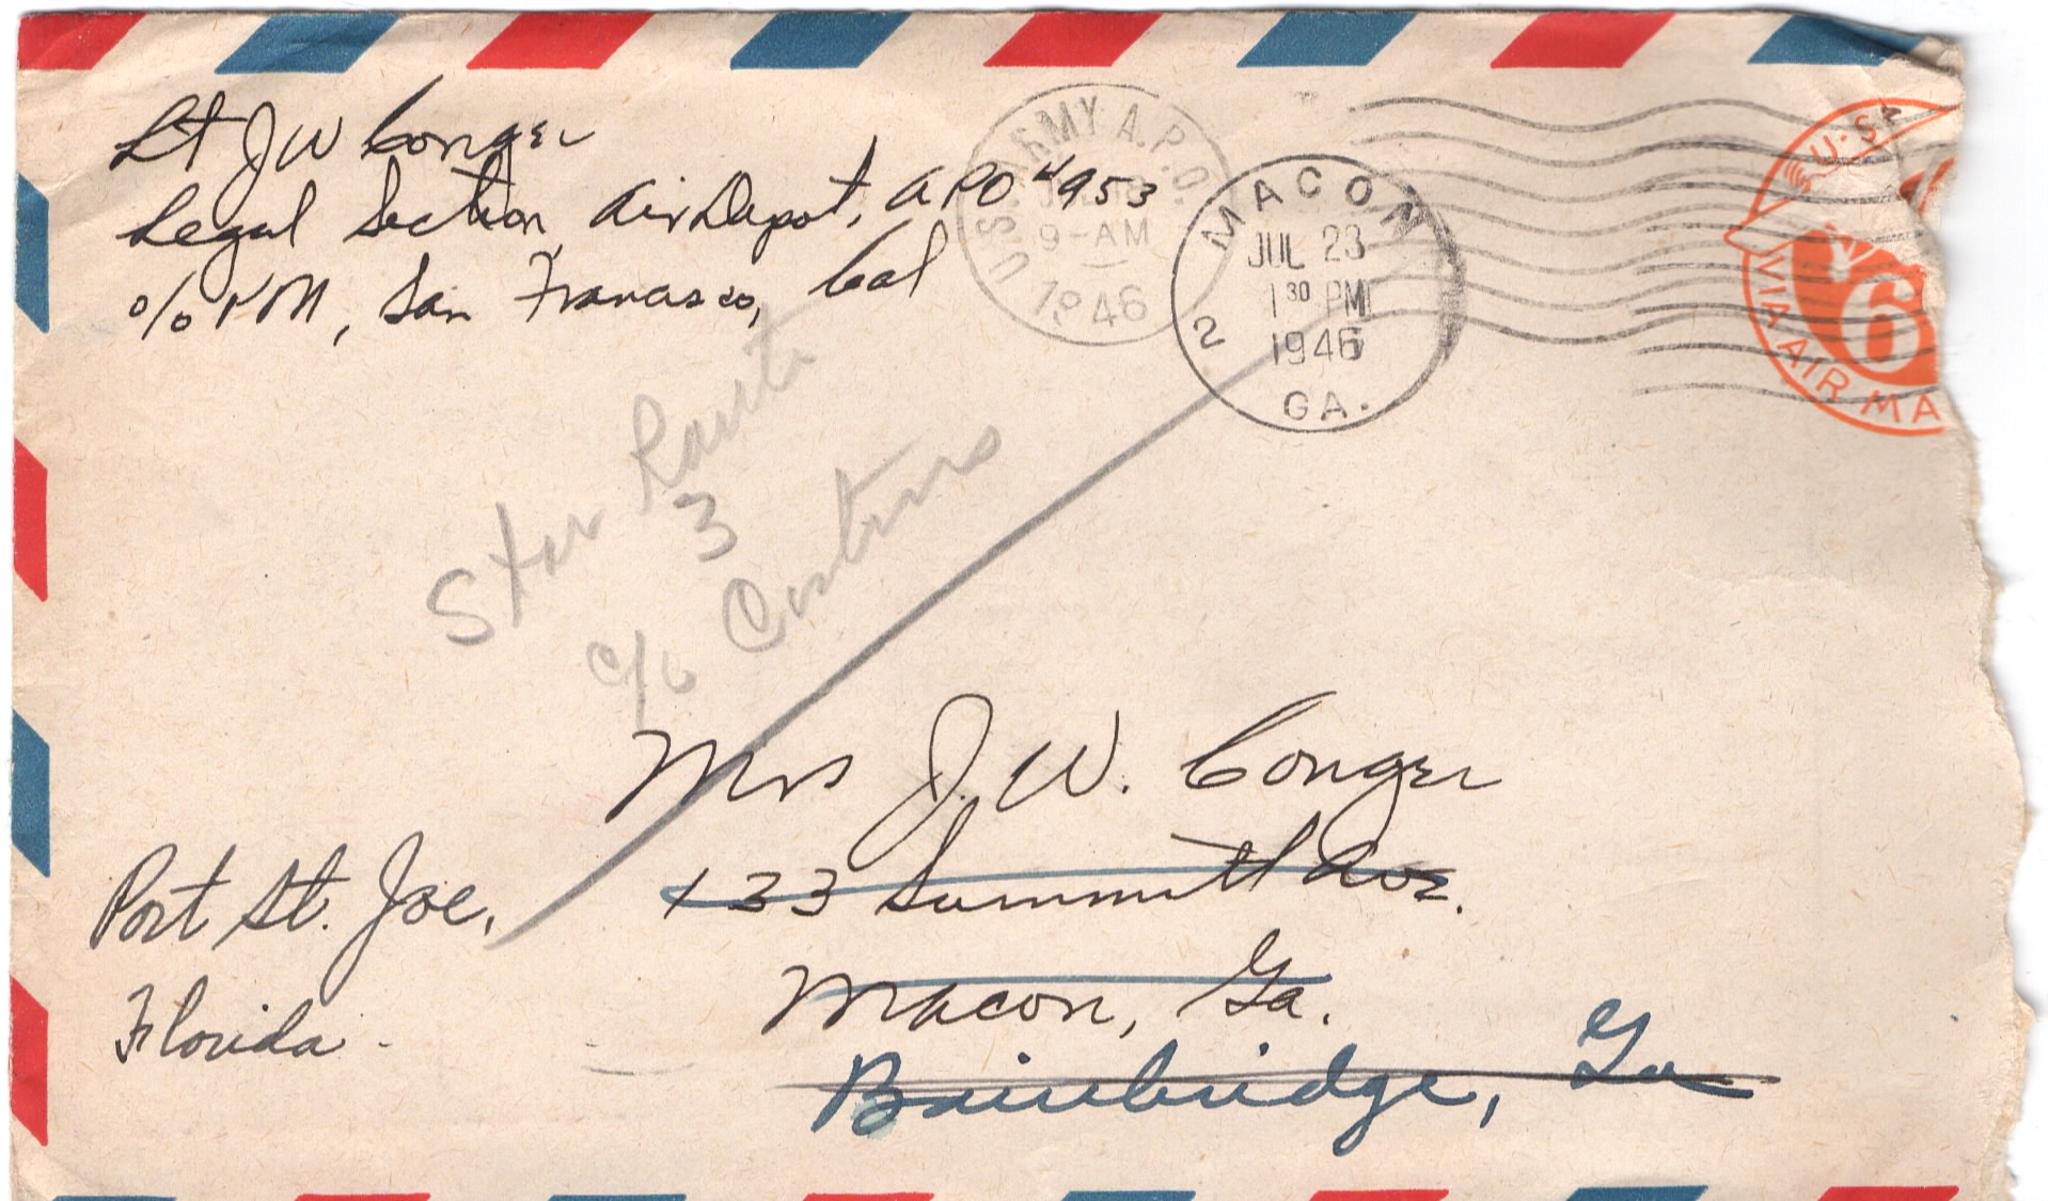 Lt J W Conger
Legal Section, Air Depot, APO #953
c/o P M, San Francisco, Cal
U.S. ARMY A.P.O.
9-AM
1946
MACON
JUL 23
1 30 PM
1946
2
GA.
U.S.
VIA AIR MA
6
Star Route
3
c/o
Mrs J. W. Conger
133 Summitt Ave.
Macon, Ga.
Bainbridge, Ga
Port St. Joe,
Florida.